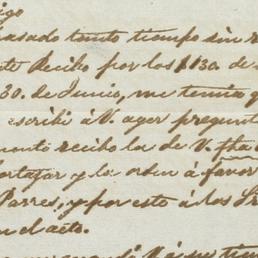 igo
pasado tanto tiempo sin r
te Recibo por los $130. de
30. de Junio, me tenia q
escribi á V. ayer pregunt
mente recibo la de V. fha
ortajar y la orden á favor
Parres, y por esto á los Sr
n el acto.